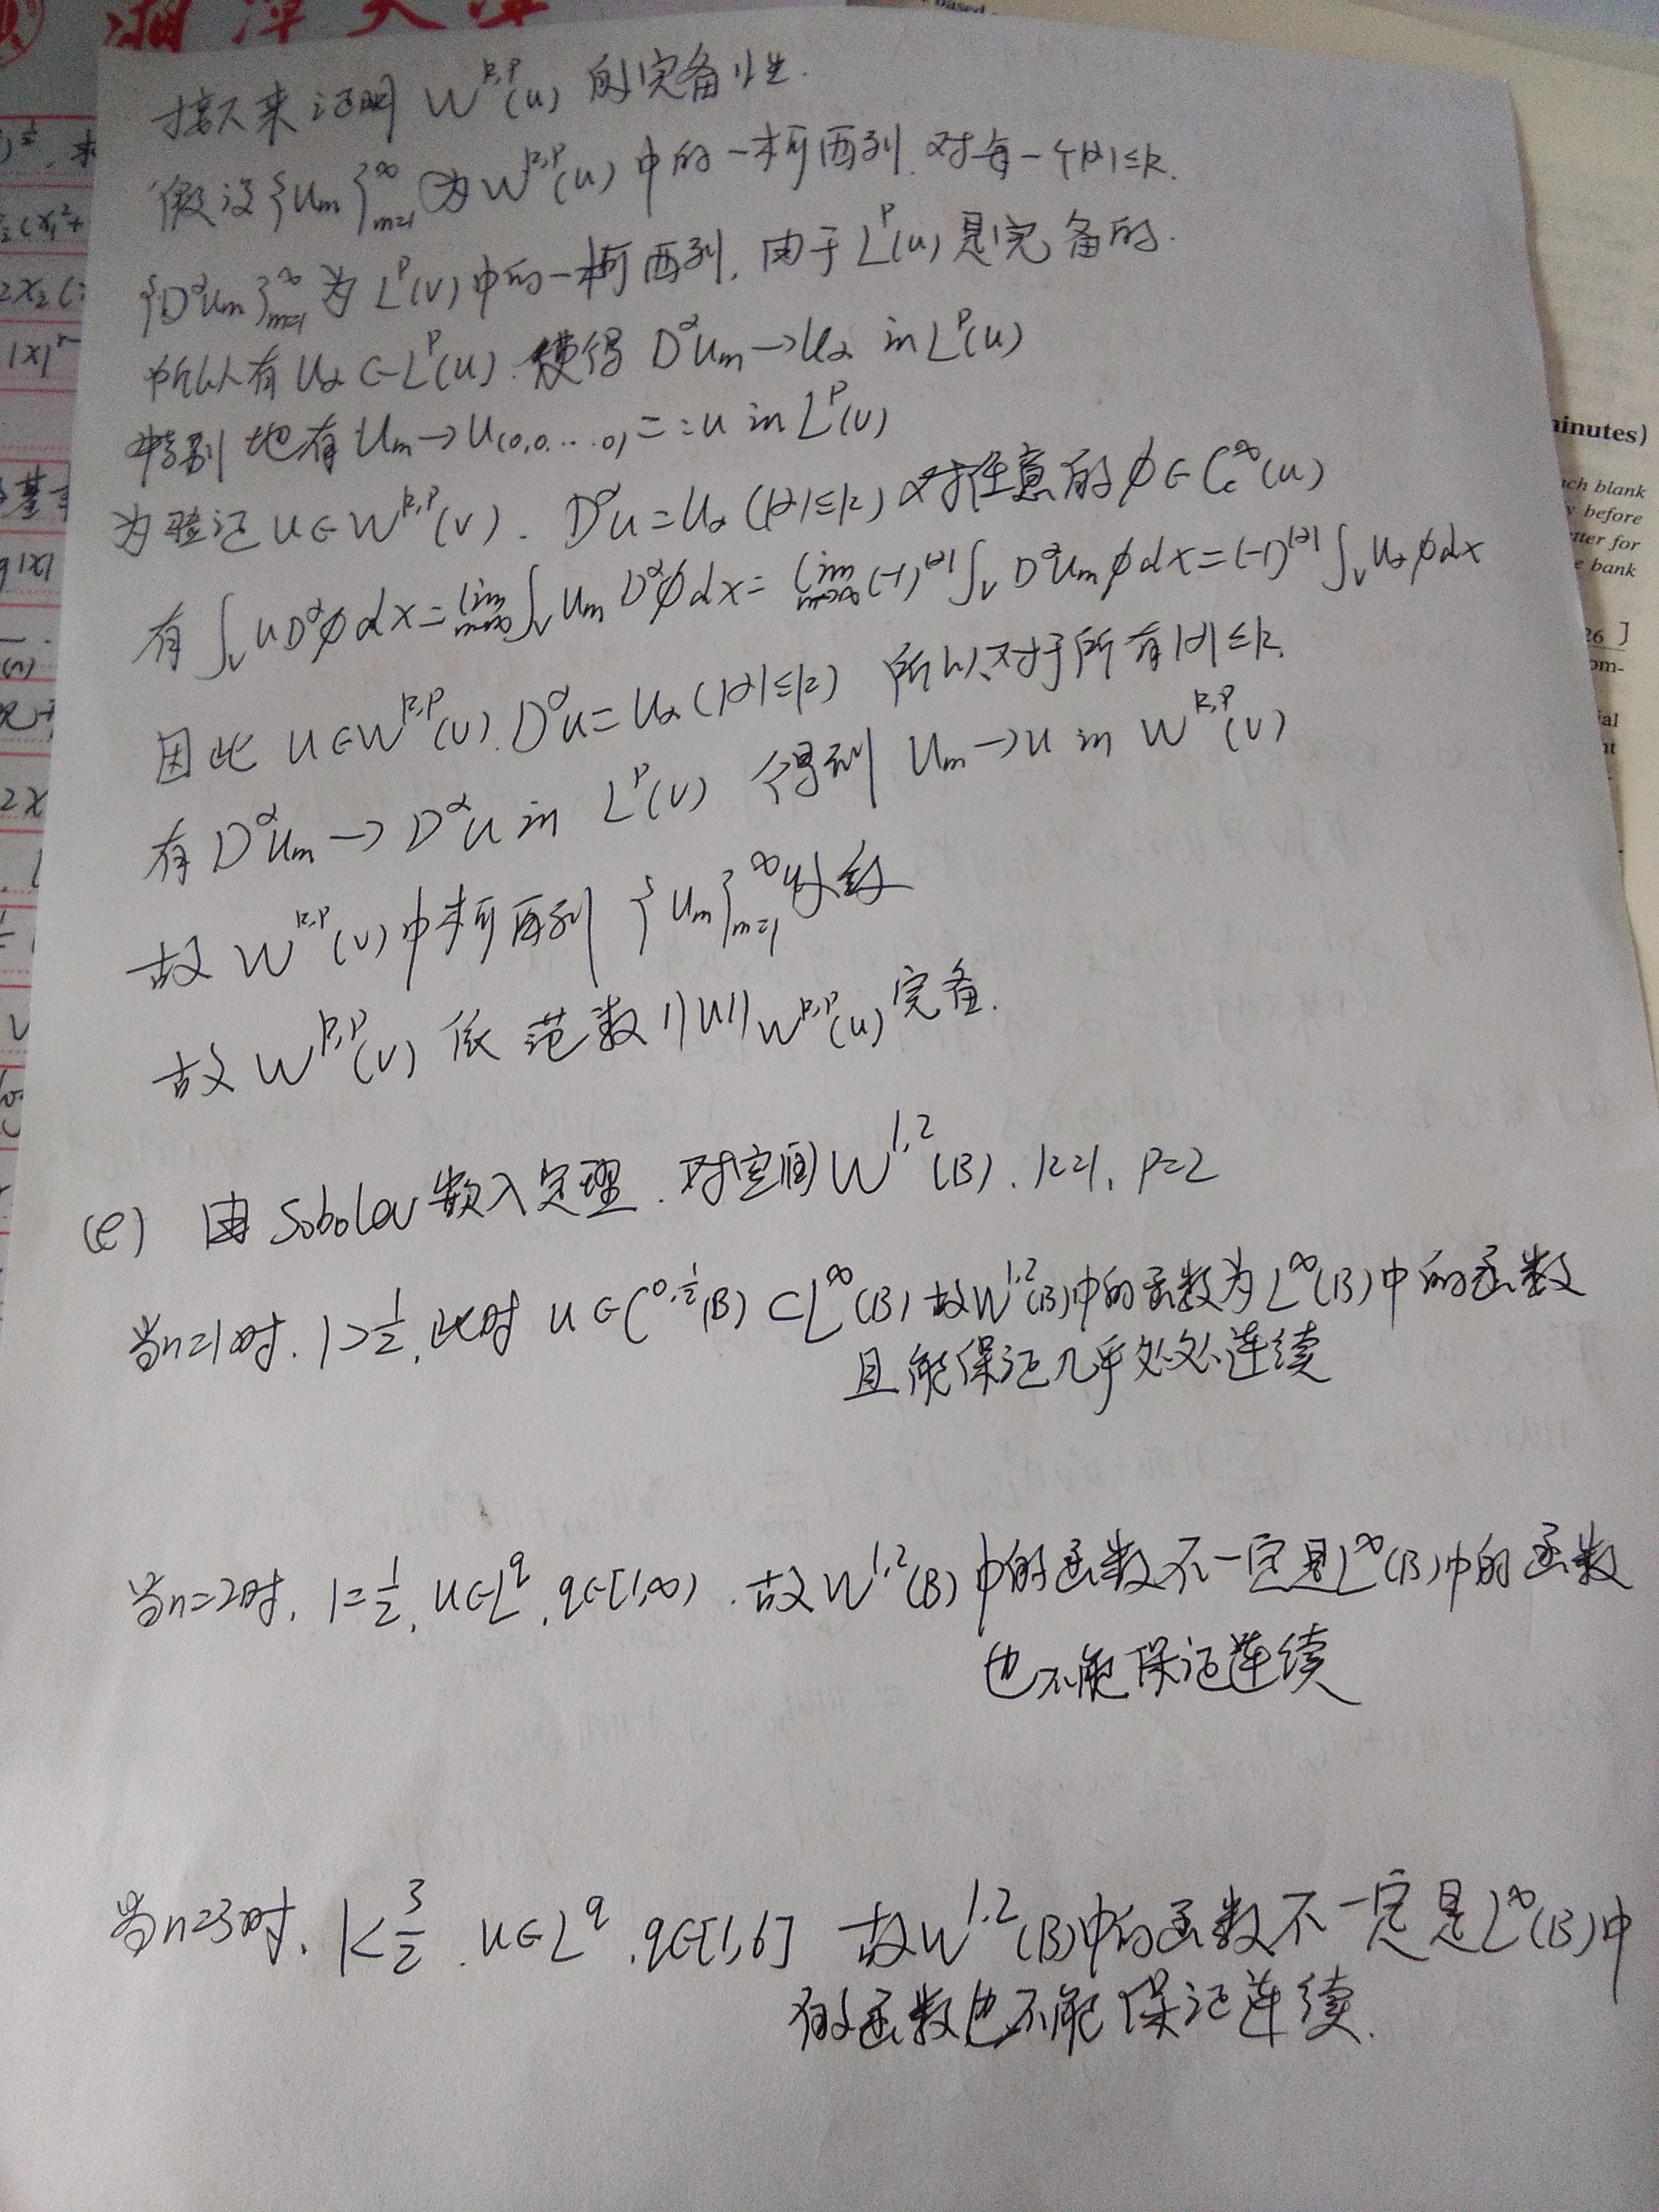 湘潭大
based
接下来证明 W^{k,p}(U) 的完备性.
假设{u_m}_{m=1}^∞为W^{k,p}(U)中的一柯西列.对每一个|α|≤k.
{D^αu_m}_{m=1}^∞为L^p(U)中的一柯西列.由于L^p(U)是完备的.
所以有u_α∈L^p(U).使得 D^αu_m→u_α in L^p(U)
特别地有u_m→u_{(0,0,…,0)}=:u in L^p(U)
为验证u∈W^{k,p}(U). D^αu=u_α(|α|≤k)对任意的φ∈C_c^∞(U)
有∫_U uD^αφdx=lim_{m→∞}∫_U u_m D^αφdx=lim_{m→∞}(-1)^{|α|}∫_U D^αu_mφdx=(-1)^{|α|}∫_U u_αφdx
因此 u∈W^{k,p}(U).D^αu=u_α(|α|≤k) 所以对于所有|α|≤k.
有D^αu_m→D^αu in L^p(U) 得到 u_m→u in W^{k,p}(U)
故W^{k,p}(U)中柯西列{u_m}_{m=1}^∞收敛
故W^{k,p}(U)依范数||u||_{W^{k,p}(U)}完备.
(e) 由Sobolev嵌入定理.对空间W^{1,2}(B).k=1, p=2
当n=1时.1>1/2,此时 u∈C^{0,1/2}(B)⊂L^∞(B)故W^{1,2}(B)中的函数为L^∞(B)中的函数
且能保证几乎处处连续
当n=2时,1=1/2,u∈L^q,q∈[1,∞).故W^{1,2}(B)中的函数不一定是L^∞(B)中的函数
也不能保证连续
当n=3时,1<3/2.u∈L^q,q∈[1,6] 故W^{1,2}(B)中的函数不一定是L^∞(B)中
的函数也不能保证连续.
inutes)
ch blank
before
tter for
bank
26 ]
om-
ial